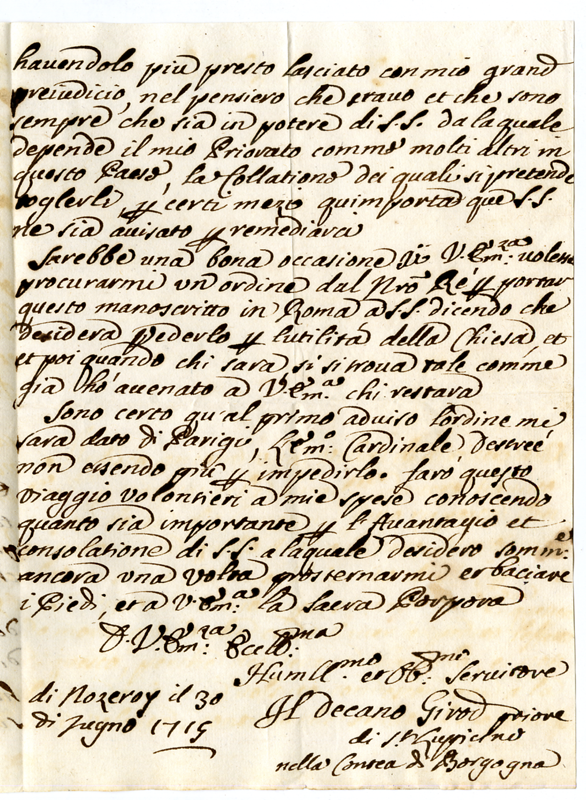 havendolo più presto lasciato con mio grand
preiudicio, nel pensiero che eravo et che sono
sempre che sia in potere di S.S. da la quale
depende il mio Priorato comme molti altri in
questo Paese, la Collatione dei quali si pretende
toglerli, p certi mezio qu'importa que S.S.
ne sia avisato p remediarci
Sarebbe una bona occasione si V. Em.za volesse
procurarmi un ordine dal Nro Ré p portar
questo manoscritto in Roma a S.S. dicendo che
desidera vederlo p lutilita della Chiesa, et
et poi quando chi sara si si trova tale comme
gia ho avenato a V. Em.a chi restara
Sono certo qu'al primo aduiso l'ordine mi
sara dato di Parigii, L'Em.o Cardinale Destreé
non essendo più p impedirlo. farò questo
viaggio volontieri a mie spese conoscendo
quanto sia importante p l'avantagio et
consolatione di S.S. a laquale desidero somm.e
ancora una volta prosternarmi et baciare
i Piedi, et a V. Em.a la sacra Porpora
D. V. Em.za Ecell.ma
Humll.mo et Obb.mo Servitore
di Nozeroy il 30
di Iugno 1715
Il Decano Girod priore
di S.t Luppicino
nella Contea di Borgogna